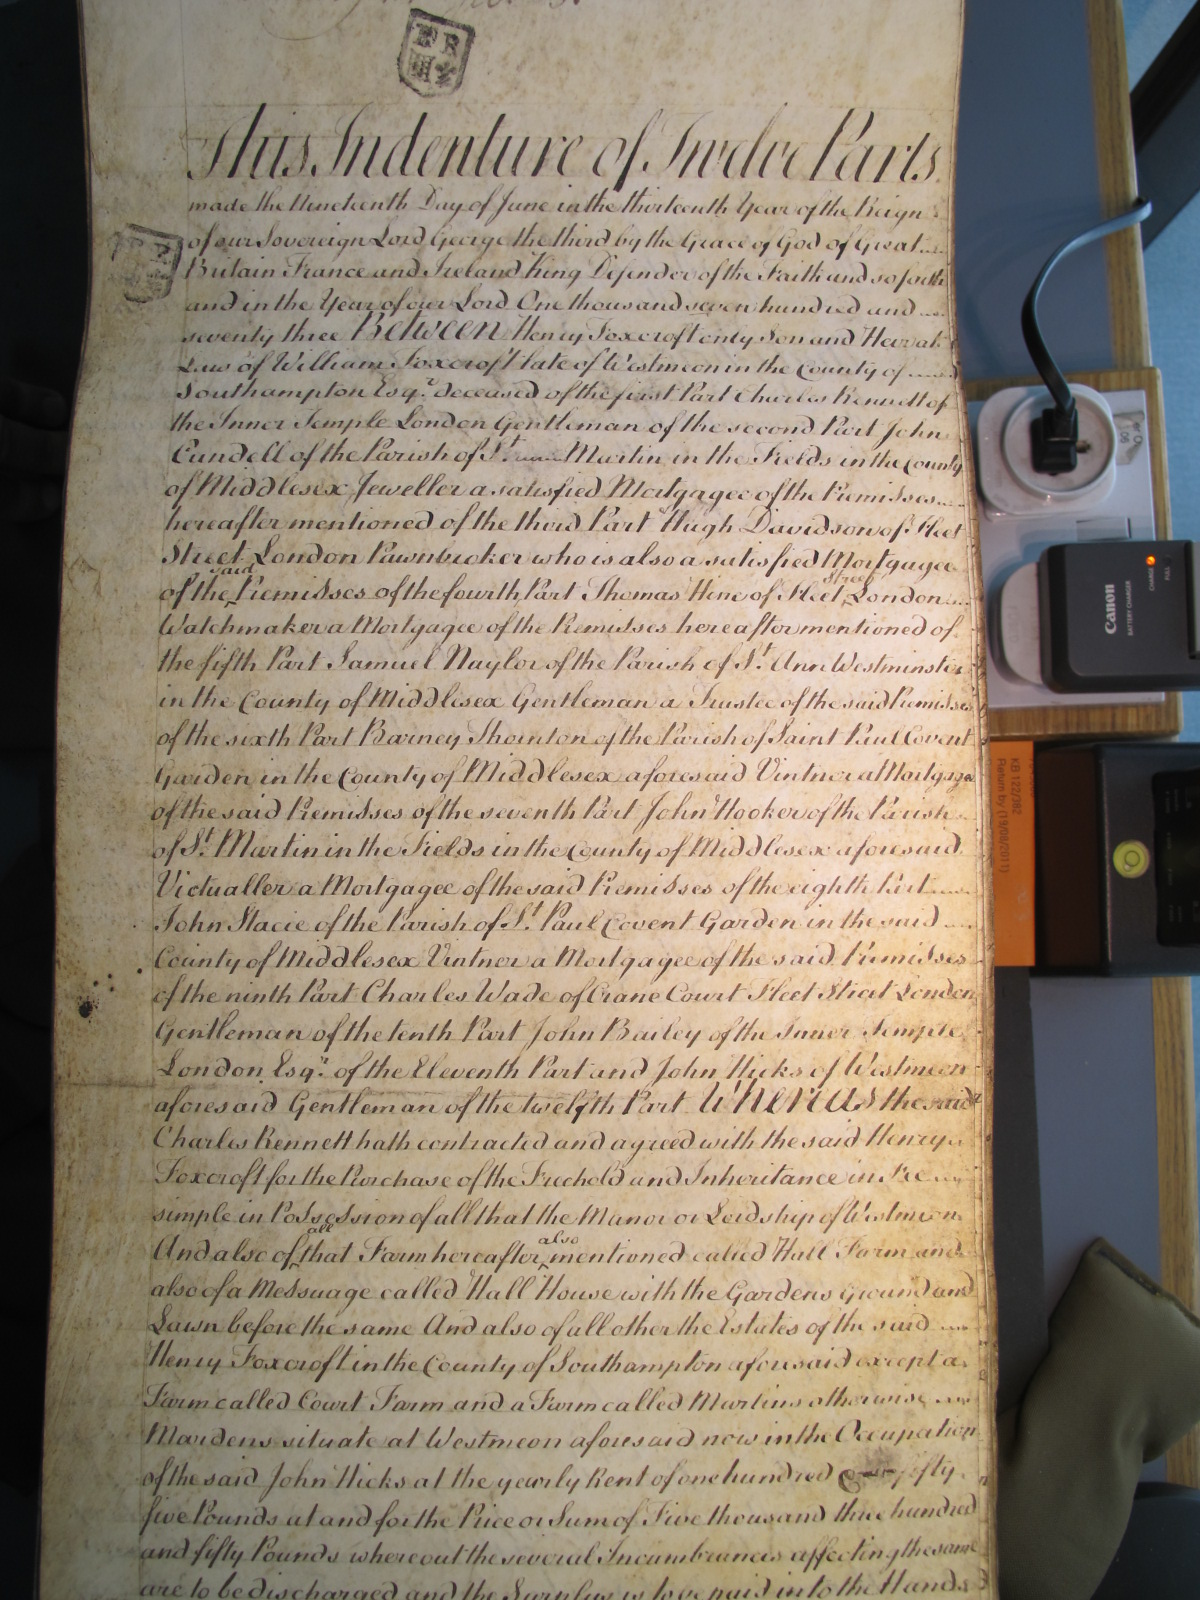 This Indenture of Twelve Parts
made the Nineteenth Day of June in the thirteenth Year of the Reign
of our Sovereign Lord George the third by the Grace of God of Great
Britain France and Ireland King Defender of the Faith and so forth
and in the Year of our Lord One thousand seven hundred and
seventy three Between Henry Foxcroft only Son and Heir at
Law of William Foxcroft late of Westmeon in the County of
Southampton Esqr. deceased of the first Part Charles Rennett of
the Inner Temple London Gentleman of the second Part John
Cundell of the Parish of St. Martin in the Fields in the County
of Middlesex Jeweller a satisfied Mortgagee of the Premisses
hereafter mentioned of the third Part Hugh Davidson of Fleet
Street London Pawnbroker who is also a satisfied Mortgagee
of the said Premisses of the fourth Part Thomas Hine of Fleet Street London
Watchmaker a Mortgagee of the Premisses hereafter mentioned of
the fifth Part Samuel Naylor of the Parish of St. Ann Westminster
in the County of Middlesex Gentleman a Trustee of the said Premisses
of the sixth Part Barney Thornton of the Parish of Saint Paul Covent
Garden in the County of Middlesex aforesaid Vintner a Mortgagee
of the said Premisses of the seventh Part John Hooker of the Parish
of St. Martin in the Fields in the County of Middlesex aforesaid
Victualler a Mortgagee of the said Premisses of the eighth Part
John Stacie of the Parish of St. Paul Covent Garden in the said
County of Middlesex Vintner a Mortgagee of the said Premisses
of the ninth Part Charles Wade of Crane Court Fleet Street London
Gentleman of the tenth Part John Bailey of the Inner Temple
London Esqr. of the Eleventh Part and John Hicks of Westmeon
aforesaid Gentleman of the twelfth Part Whereas the said
Charles Rennett hath contracted and agreed with the said Henry
Foxcroft for the Purchase of the Freehold and Inheritance in Fee
simple in Possession of all that the Manor or Lordship of Westmeon
And also of all that Farm hereafter also mentioned called Hall Farm and
also of a Messuage called Hall House with the Gardens Ground and
Lawn before the same And also of all other the Estates of the said
Henry Foxcroft in the County of Southampton aforesaid except a
Farm called Court Farm and a Farm called Martins otherwise
Mardens situate at Westmeon aforesaid now in the Occupation
of the said John Hicks at the yearly Rent of one hundred fifty
five Pounds at and for the Price or Sum of Five thousand three hundred
and fifty Pounds whereout the several Incumbrances affecting the same
are to be discharged and the Surplus is to be paid into the Hands
Canon
BATTERY CHARGER
CHARGE
FULL
KB 122/382
Return by (19/08/2011)